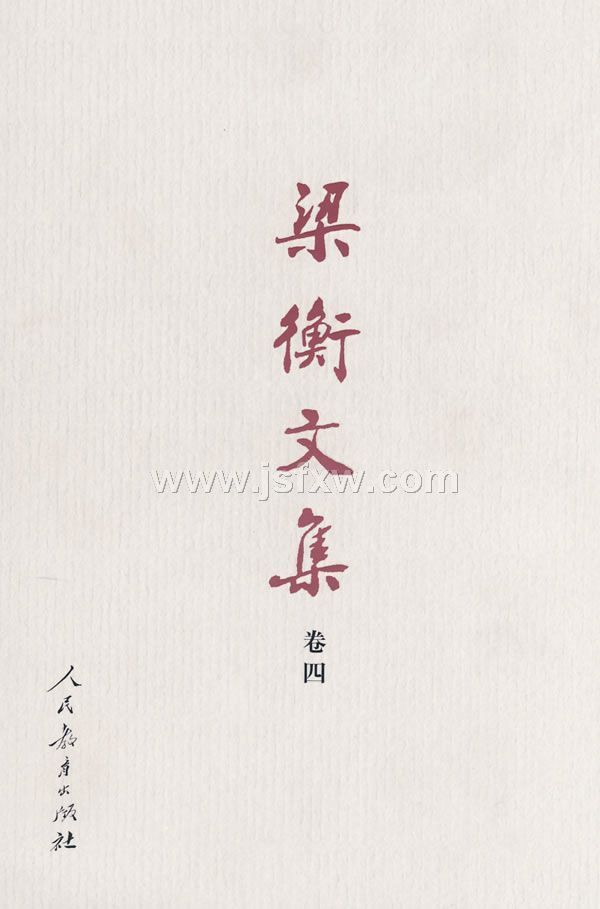 梁衡文集
卷四
人民教育出版社
www.jsfxw.com